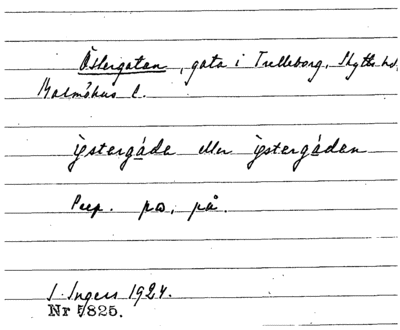 Östergatan, gata i Trelleborg, Skytts hd,
Malmöhus l.
ÿstergáda eller ÿstergádan
Prep. på, på.
I. Ingers 1924.
Nr 5825.